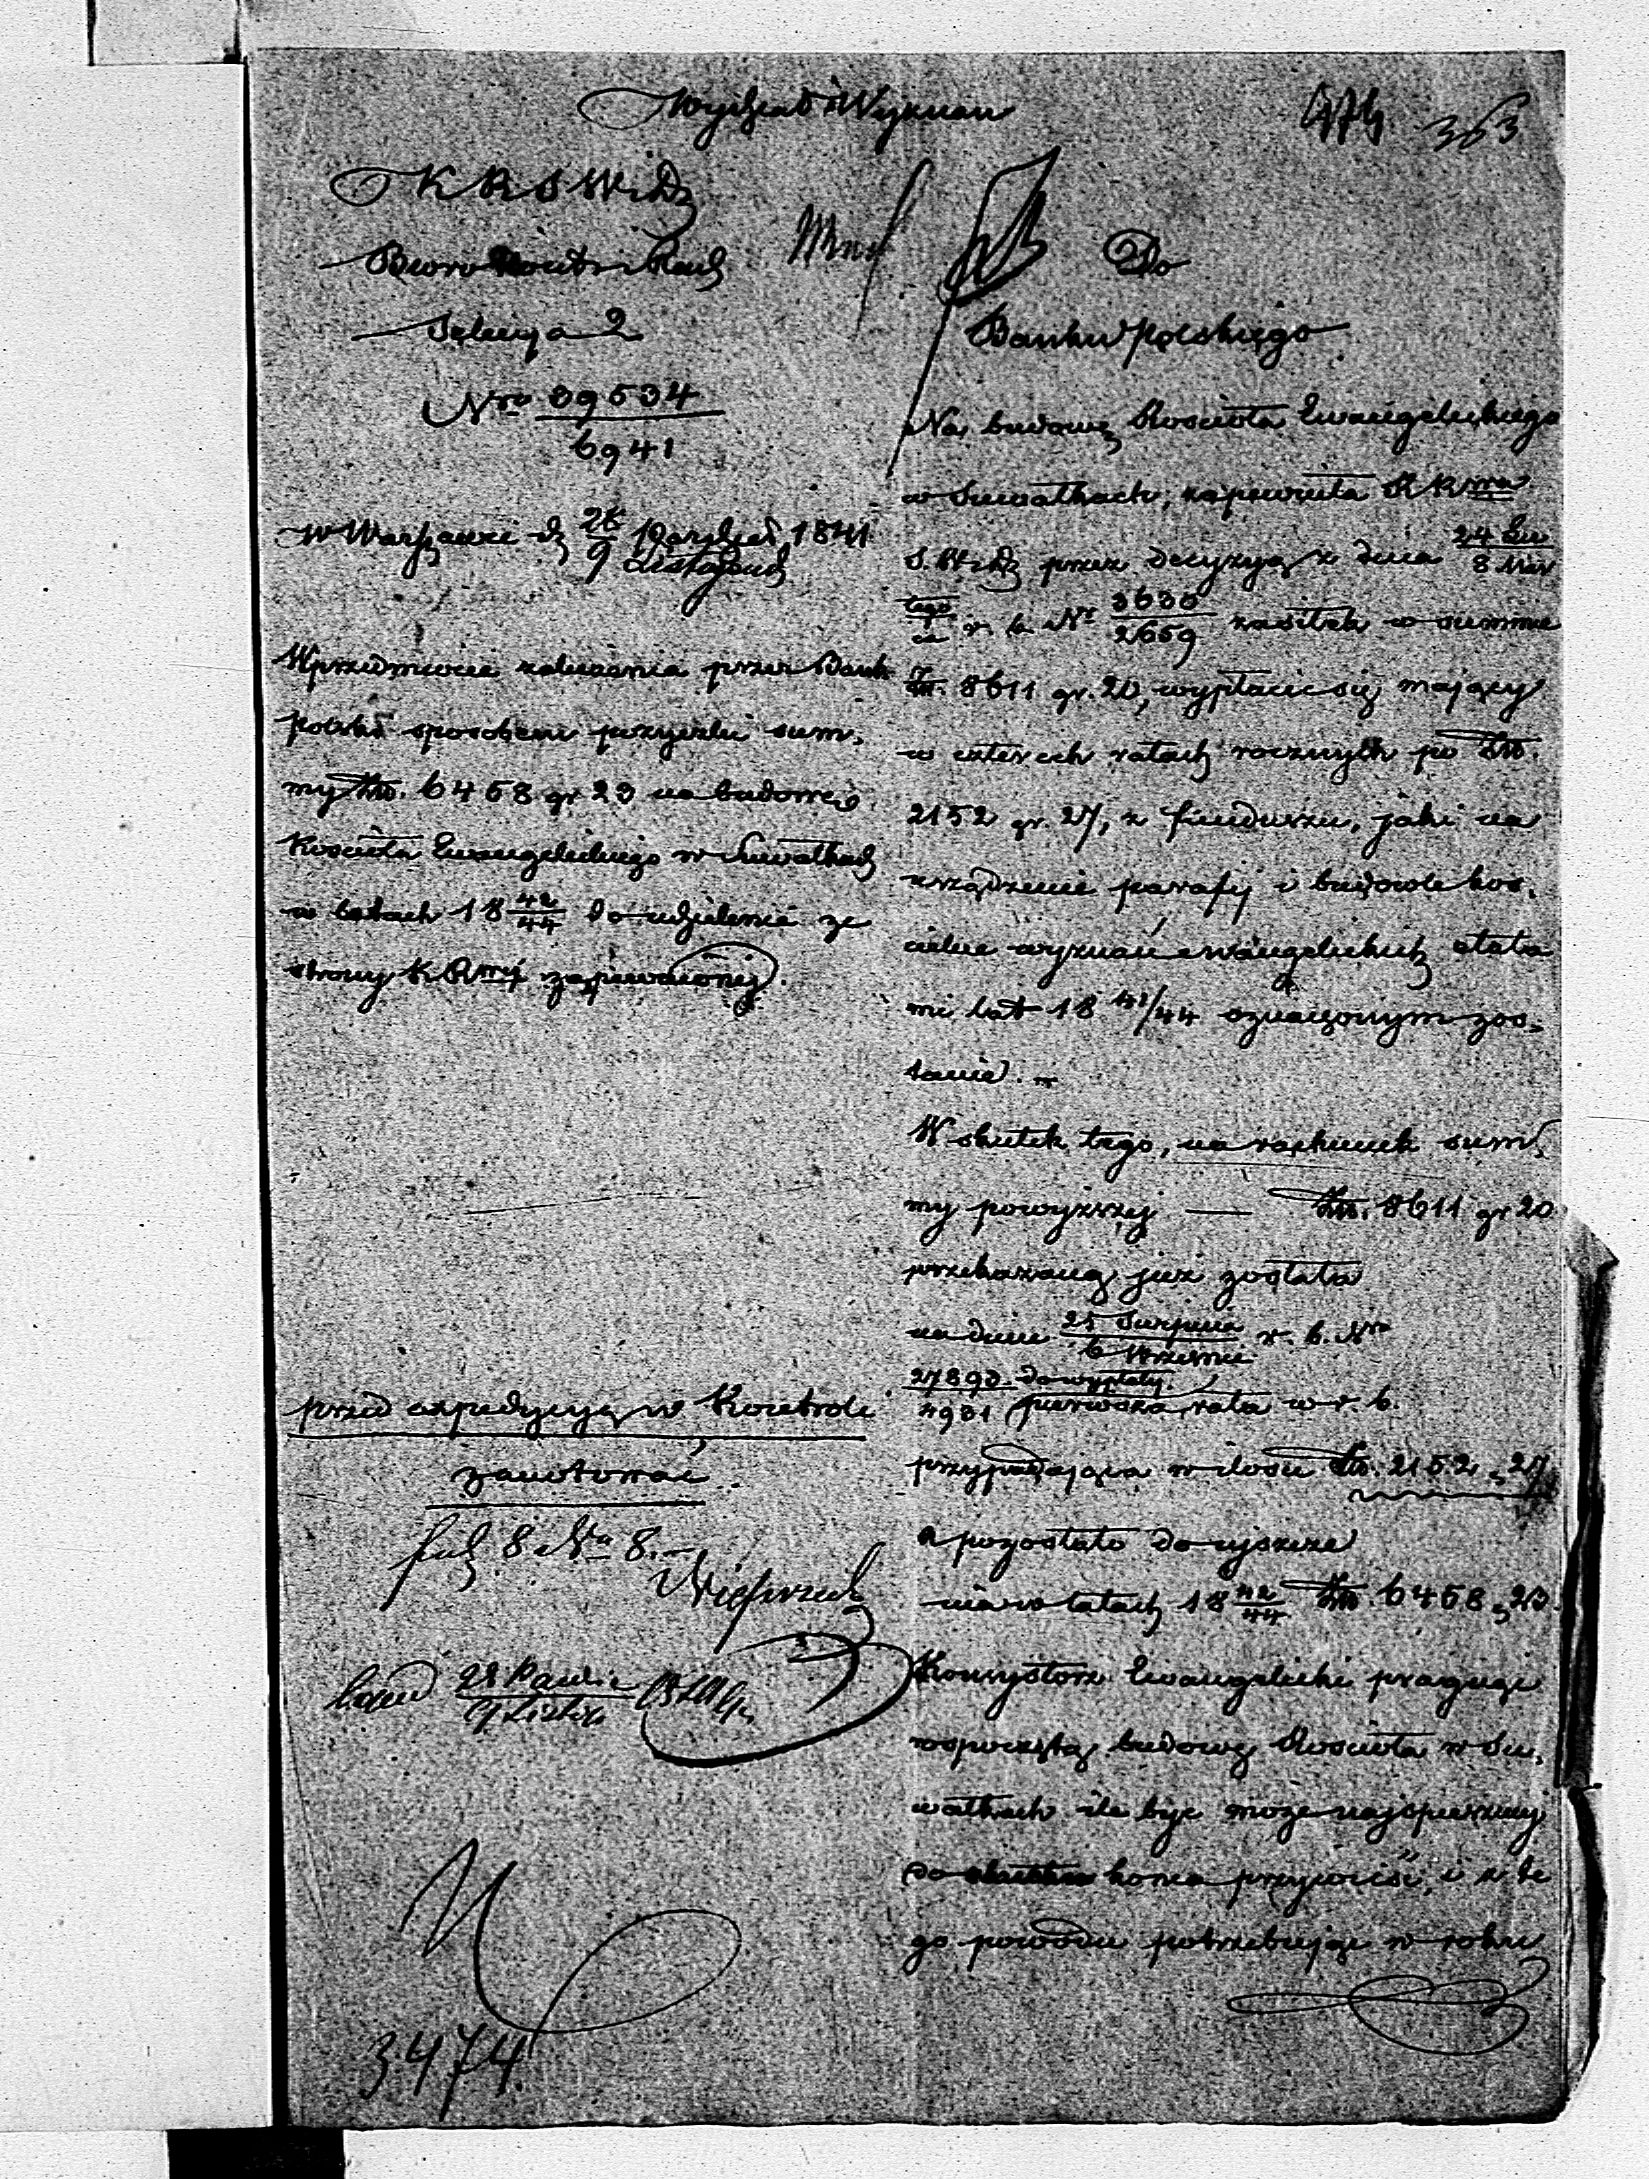 Wydział Wyznań
474 353
K R S W i D
Biuro Kontr i Rach
Sekcya 2
Nro 39534
6941
w Warszawie d 28 Paździer 1841
9 Listopad
W przedmiocie zaliczenia przez Bank
polski sposobem pożyczki sum,
my Złt. 6458 gr 23 na budowę
Kościoła Ewangelickiego w Suwałkach
w latach 18 42/44 do udzielenia ze
strony K Rząd zapewnionej.
przed expedycyą w Kontroli
zanotować
8 Nr 8.
28 Paździe
9 Listop
3474.
Do
Banku Polskiego
Na budowę Kościoła Ewangelickiego
w Suwałkach, zapewniła K R
S. W i D przez decyzyą z dnia 24 Lu
8 Mar
tego
ca r. b. Nr 3630
2659 zasiłek w summie
Zł. 8611 gr. 20, wypłacić się mający
w czterech ratach rocznych po Złt.
2152 gr. 27, z funduszu, jaki na
urządzenie parafij i budowle koś,
cielne wyznań ewangelickich etata
mi lat 18 41/44 oznaczonym zos,
tanie.
W skutek tego, na rachunek sum,
my powyższej — Złt. 8611 gr 20
przekazaną już została
na dniu 25 Sierpnia
6 Wrześnie r. b. Nro
27893 do wypłaty
4931 pierwsza rata w r. b.
przypadająca w ilości Złt. 2152 „ 27
a pozostało do uiszcze
nia w latach 18 42/44 Złt. 6458 „ 23.
Konsystorz Ewangelicki pragnąc
rozpoczętą budowę Kościoła w Su,
wałkach ile być może najspieszniej
do końca przywieść, i z te
go powodu potrzebując w roku